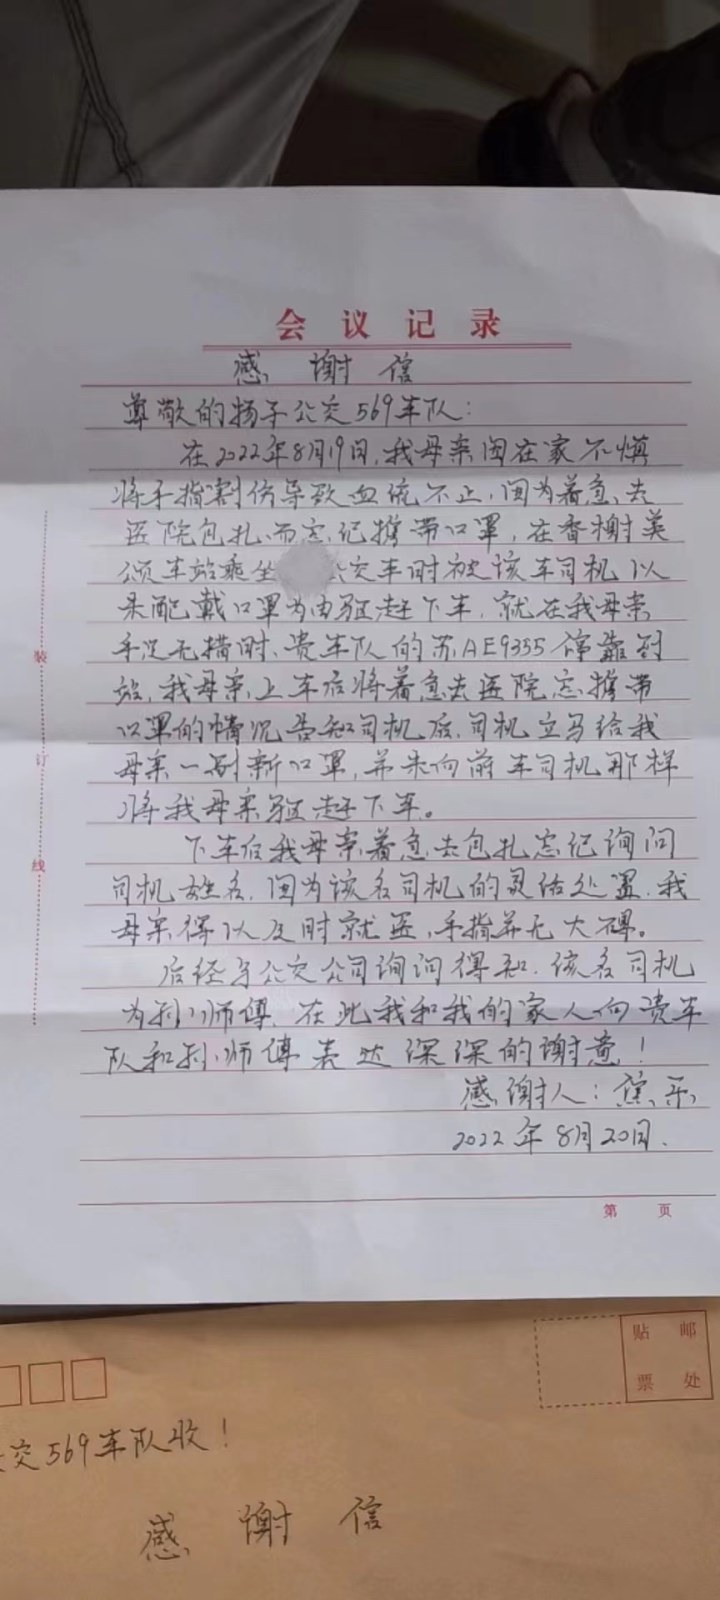 会议记录
感谢信
尊敬的扬子公交569车队：
在2022年8月19日，我母亲因在家不慎
将手指割伤导致血流不止，因为着急去
医院包扎而忘记携带口罩，在香榭美
颂车站乘坐 公交车时被该车司机以
未配戴口罩为由驱赶下车，就在我母亲
手足无措时、贵车队的苏AE9355停靠到
站，我母亲上车后将着急去医院忘携带
口罩的情况告知司机后，司机立马给我
母亲一副新口罩，并未向前车司机那样
将我母亲驱赶下车。
下车后我母亲着急去包扎忘记询问
司机姓名，因为该名司机的灵活处置，我
母亲得以及时就医，手指并无大碍。
后经与公交公司询问得知，该名司机
为孙师傅，在此我和我的家人向贵车
队和孙师傅表达深深的谢意！
感谢人：
2022年8月20日.
第 页
装
订
线
贴 邮
票 处
交569车队收！
感谢信